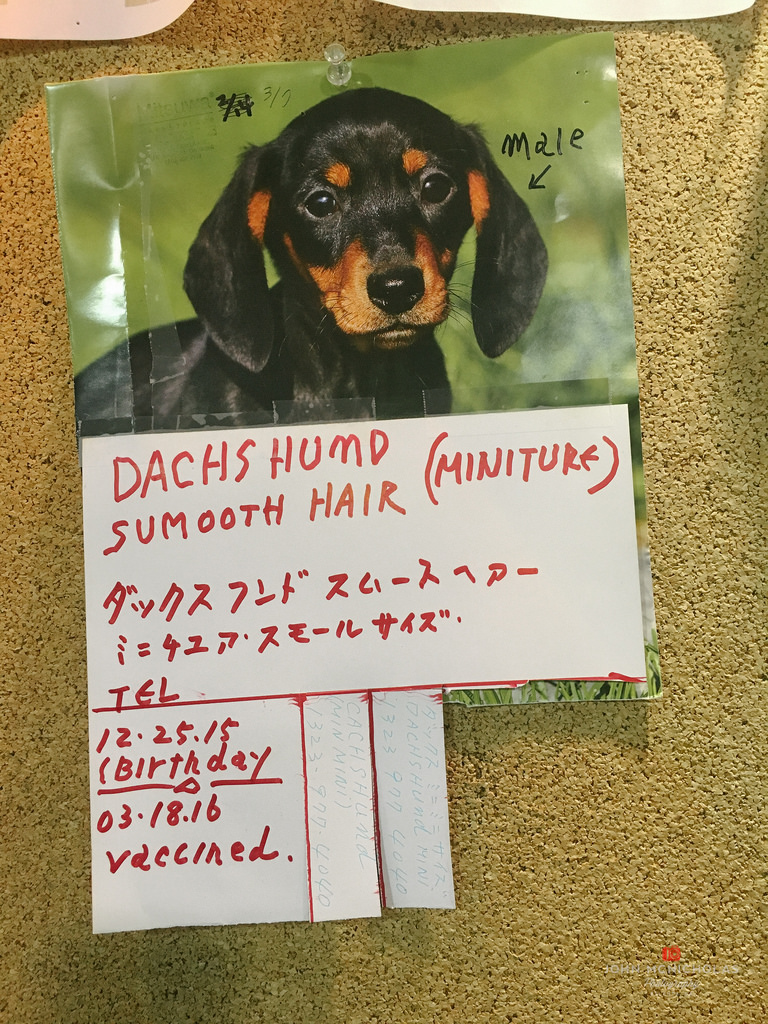 3/7
male
DACHSHUMD (MINITURE)
SUMOOTH HAIR
ダックスフンド スムースヘアー
ミニチュア・スモールサイズ・
TEL
12.25.15
(Birthday
03.18.16
vaccined.
DACHSHUND
MINI
323 977 4040
ダックス ミニミニサイズ
DACHSHUND MINI
323 977 4040
JOHN MCNICHOLAS
Photography